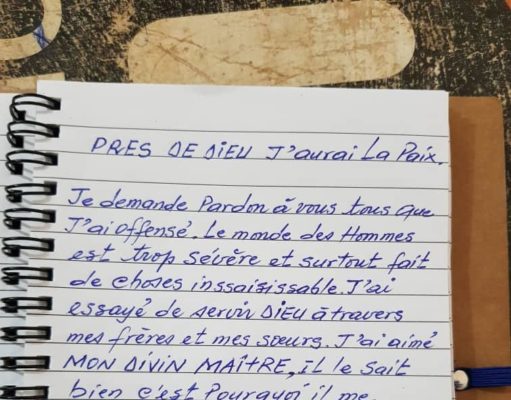 PRES DE DIEU J'aurai La Paix.
Je demande Pardon à vous tous que
J'ai offensé. Le monde des Hommes
est trop sévère et surtout fait
de choses inssaisissable. J'ai
essayé de servir DIEU à travers
mes frères et mes sœurs. J'ai aimé
MON DIVIN MAÎTRE, il le sait
bien c'est Pourquoi il me